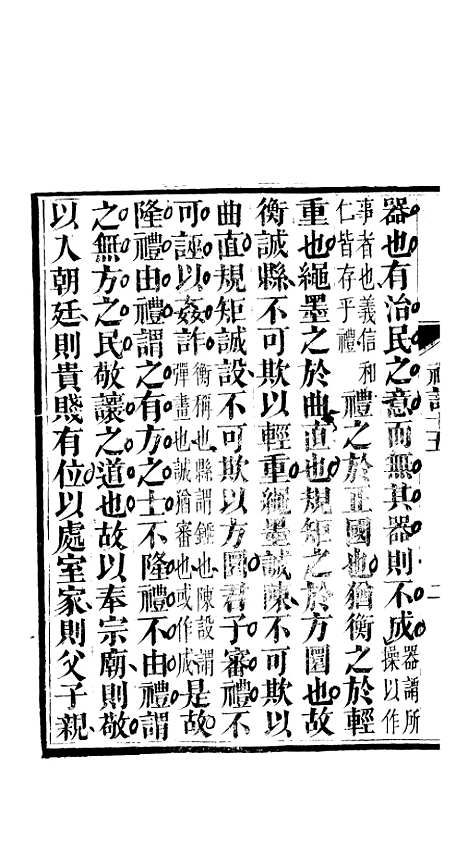 器也有治民之意而無其器則不成器謂所操以作
事者也義信和仁皆存乎禮禮之於正國也猶衡之於輕
重也繩墨之於曲直也規矩之於方圜也故
衡誠縣不可欺以輕重繩墨誠陳不可欺以
曲直規矩誠設不可欺以方圜君子審禮不
可誣以姦詐衡稱也縣謂錘也陳設謂彈畫也誠猶審也或作成是故
隆禮由禮謂之有方之士不隆禮不由禮謂
之無方之民敬讓之道也故以奉宗廟則敬
以入朝廷則貴賤有位以處室家則父子親